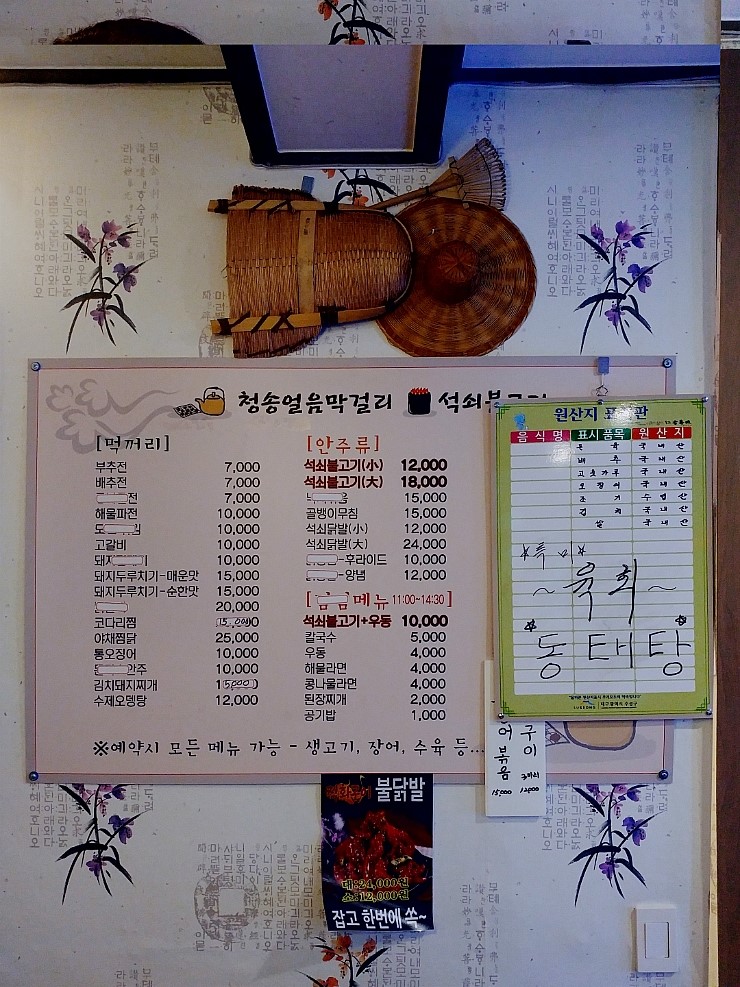 청송얼음막걸리 석쇠불고기
[먹꺼리]
부추전 7,000
배추전 7,000
전 7,000
해물파전 10,000
도 10,000
고갈비 10,000
돼지 10,000
돼지두루치기-매운맛 15,000
돼지두루치기-순한맛 15,000
20,000
코다리찜 15,000
야채찜닭 25,000
통오징어 10,000
안주 10,000
김치돼지찌개 15,000
수제오뎅탕 12,000
[안주류]
석쇠불고기(小) 12,000
석쇠불고기(大) 18,000
15,000
골뱅이무침 15,000
석쇠닭발(小) 12,000
석쇠닭발(大) 24,000
-후라이드 10,000
-양념 12,000
[메뉴 11:00~14:30]
석쇠불고기+우동 10,000
칼국수 5,000
우동 4,000
해물라면 4,000
콩나물라면 4,000
된장찌개 2,000
공기밥 1,000
※예약시 모든 메뉴 가능 - 생고기, 장어, 수육 등...
원산지 표시판
음식명 표시품목 원산지
국내산
배추 국내산
고춧가루 국내산
오징어 국내산
조기 수입산
김치 국내산
쌀 국내산
*특미*
~육회~
동태탕
SUSEONG 대구광역시 수성구
구이
3마리
12000
어볶음
15000
불닭발
대:24,000원
소:12,000원
잡고 한번에 쏙~